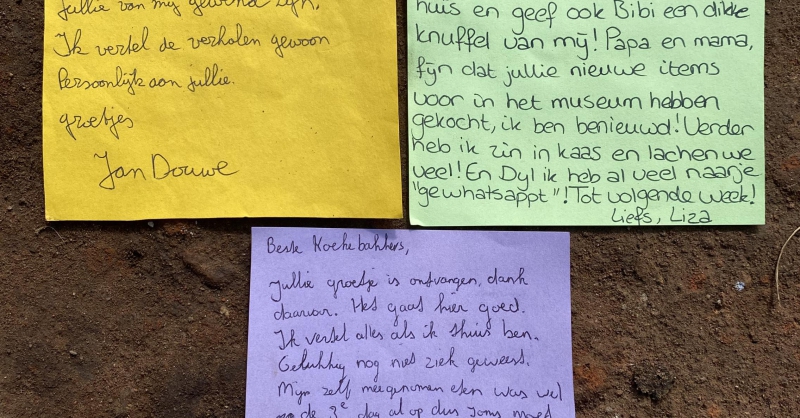 Jullie van mij gewend zijn.
Ik vertel de verhalen gewoon
Persoonlijk aan jullie.
groetjes
Jan Douwe
huis en geef ook Bibi een dikke
knuffel van mij! Papa en mama,
fijn dat jullie nieuwe items
voor in het museum hebben
gekocht, ik ben benieuwd! Verder
heb ik zin in kaas en lachen we
veel! En Dyl ik heb al veel naar je
"gewhatsappt"! Tot volgende week!
Liefs, Liza
Beste Koekebakkers,
Jullie groetje is ontvangen, dank
daarvoor. Het gaat hier goed.
Ik vertel alles als ik thuis ben.
Gelukkig nog niet ziek geweest.
Mijn zelf meegenomen eten was wel
op de 3e dag al op dus soms moet